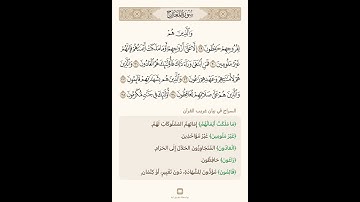 سُورَةُ المَعَارِجِ
وَالَّذِينَ هُمْ
لِفُرُوجِهِمْ حَافِظُونَ ٢٩ إِلَّا عَلَىٰ أَزْوَاجِهِمْ أَوْ مَا مَلَكَتْ أَيْمَانُهُمْ فَإِنَّهُمْ
غَيْرُ مَلُومِينَ ٣٠ فَمَنِ ابْتَغَىٰ وَرَاءَ ذَٰلِكَ فَأُولَٰئِكَ هُمُ الْعَادُونَ ٣١ وَالَّذِينَ
هُمْ لِأَمَانَاتِهِمْ وَعَهْدِهِمْ رَاعُونَ ٣٢ وَالَّذِينَ هُم بِشَهَادَاتِهِمْ قَائِمُونَ ٣٣
وَالَّذِينَ هُمْ عَلَىٰ صَلَاتِهِمْ يُحَافِظُونَ ٣٤ أُولَٰئِكَ فِي جَنَّاتٍ مُّكْرَمُونَ ٣٥
السراج في بيان غريب القرآن
﴿مَا مَلَكَتْ أَيْمَانُهُمْ﴾ إِمَائِهِمُ المَمْلُوكَاتِ لَهُمْ.
﴿غَيْرُ مَلُومِينَ﴾ غَيْرُ مُؤَاخَذِينَ.
﴿الْعَادُونَ﴾ المُتَجَاوِزُونَ الحَلَالَ إِلَى الحَرَامِ.
﴿رَاعُونَ﴾ حَافِظُونَ.
﴿قَائِمُونَ﴾ مُؤَدُّونَ لِلشَّهَادَةِ، دُونَ تَغْيِيرٍ، أَوْ كِتْمَانٍ.